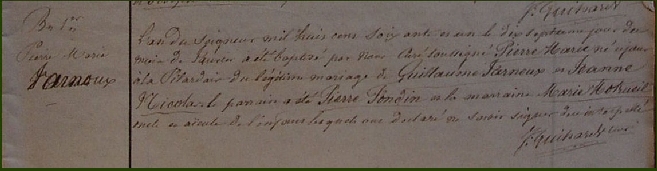 J. Guihard
Pierre Marie
Jarnoux
L'an du Seigneur mil huit cent soixante et un le dix septieme jour du
mois de Janvier a été baptisé par nous Curé soussigné Pierre Marie né ce jour
à la du légitime mariage de Guillaume Jarnoux et Jeanne
Nicolas le parrain a été Pierre et la marraine Marie
et de l'enfant lesquels ont déclaré ne savoir signer de ce interpellé
J. Guihard curé